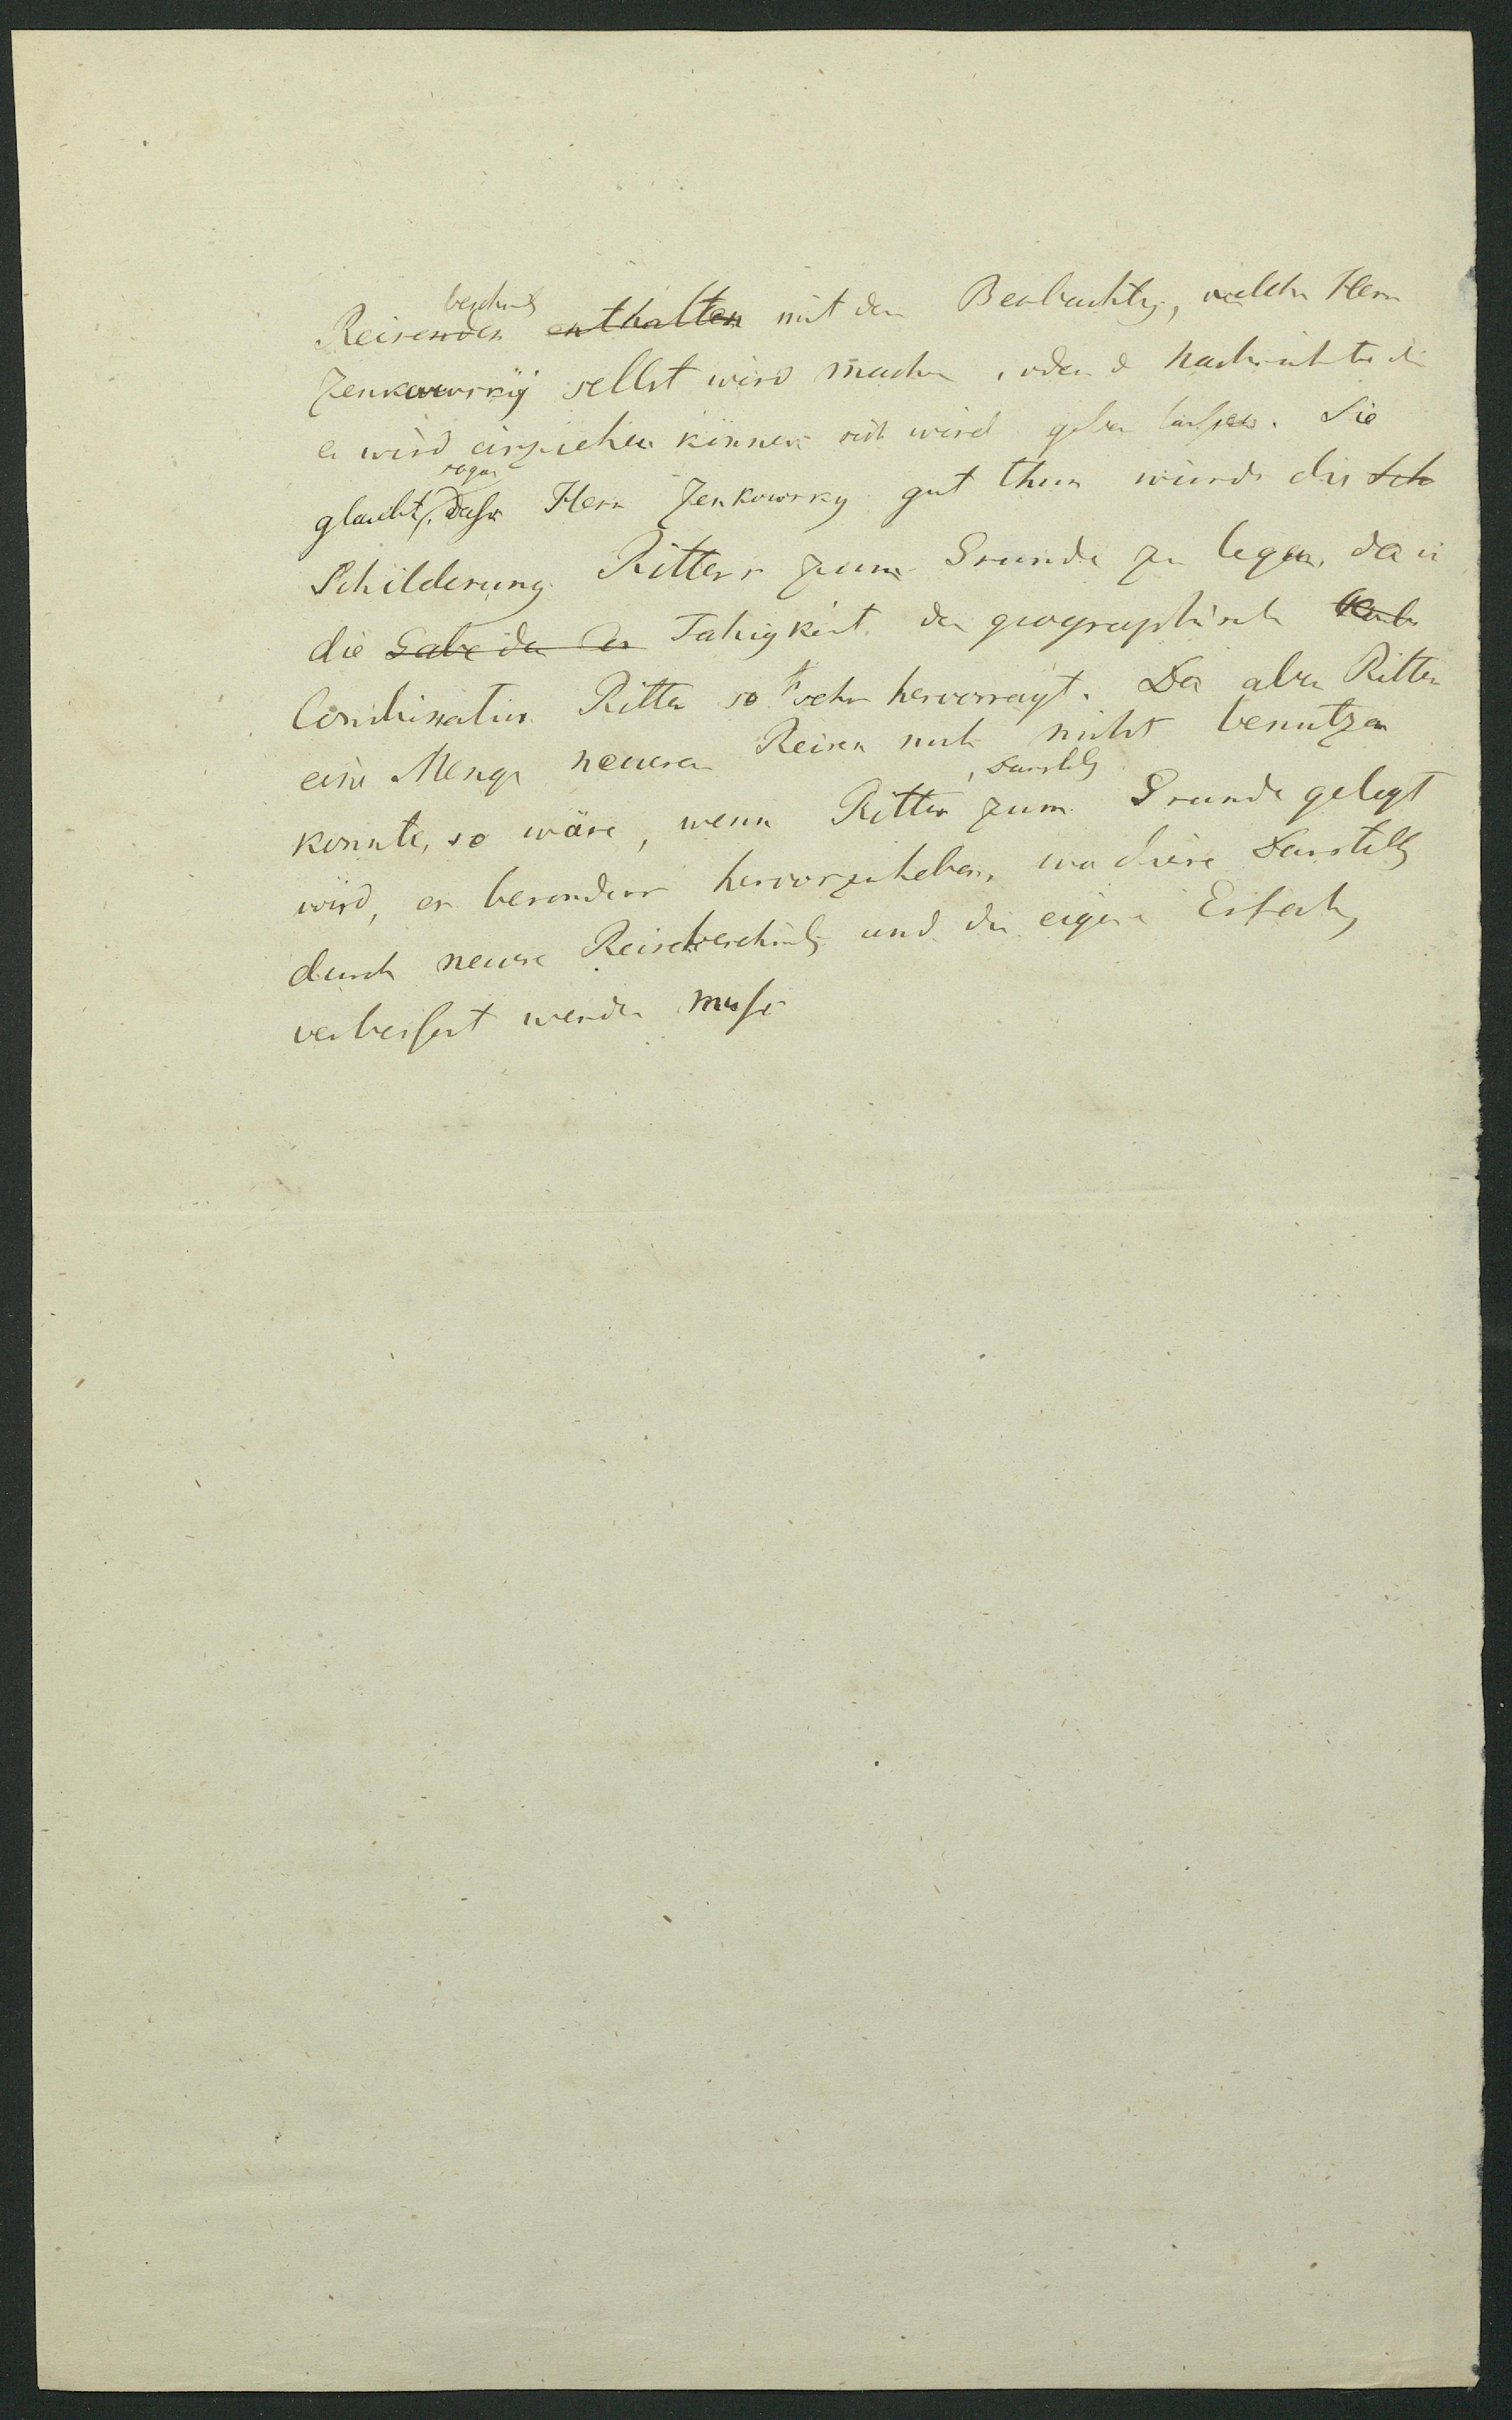 beschreib
Reisenden enthalten mit den Beobachtg, welche Herr
Zenkowsky selbst wird machen, oder d Nachrichten die
er wird einziehen können sich wird geben lassen. Sie
sogar
glaubt, dass Herr Zenkowsky gut thun würde die Sch
Schilderung Ritters zum Grunde zu legen, da in
die Gabe der der Fähigkeit der geographisch
Combination Ritter so sehr hervorragt. Da aber Ritter
eine Menge neuerer Reisen noch nicht benutzen
Darstellg
konnte, so wäre, wenn Ritters zum Grunde gelegt
wird, es besonders hervorzuheben, wo diese Darstellg
durch neuere Reisebeschreibg und die eigene Erfahrg
verbessert werden muss